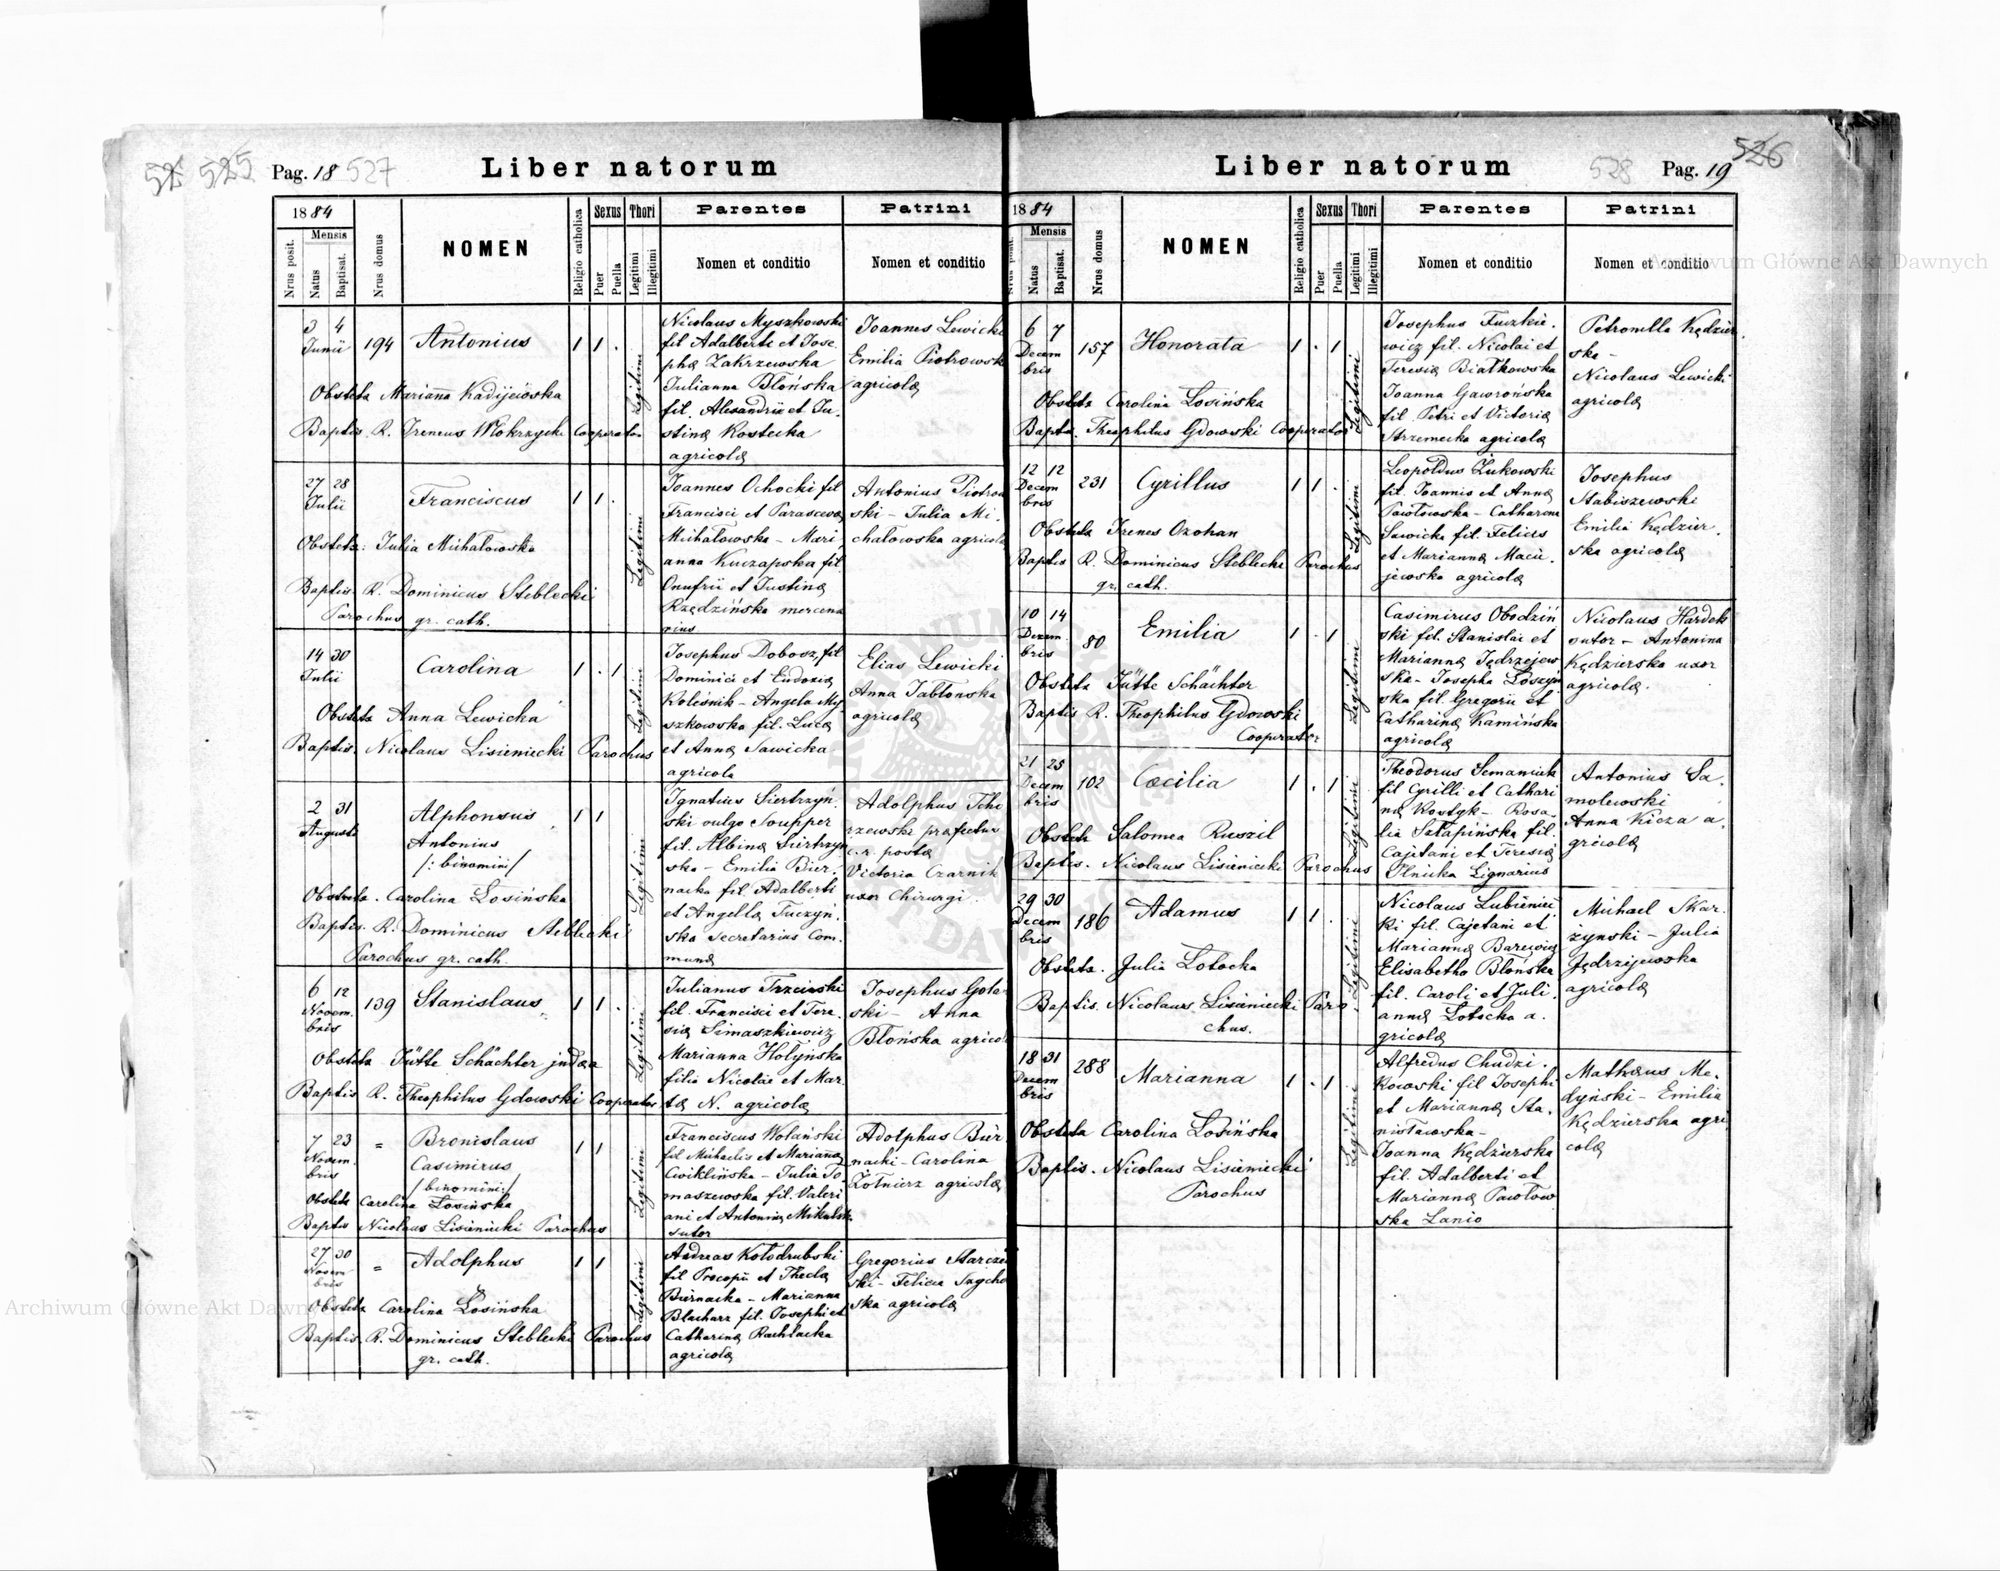 525
Pag. 18
527
Liber natorum
1884
Nrus posit.
Mensis
Natus
Baptisat.
Nrus domus
NOMEN
Religio catholica
Sexus
Puer
Puella
Thori
Legitimi
Illegitimi
Parentes
Nomen et conditio
Patrini
Nomen et conditio
3 4
Junii
194
Antonius
1 1 .
Legitimi
Obstetx Marianna Kadijewska
Baptis. R. Ireneus Mokrzycki Cooperator
Nicolaus Myszkowski
fil Adalberti et Jose
phæ Zakrzewska
Julianna Błońska
fil. Alexandrii et Ju.
stinæ Kostecka
agricolæ
Joannes Lewicki
Emilia Piotrowsk
agricolæ
27 28
Julii
Franciscus
1 1 .
Legitimi
Obstetx: Julia Michałowska
Baptis. R. Dominicus Steblecki
Parochus gr. cath.
Joannes Ochocki fil
Francisci et Parascevæ
Michałowska - Mari
anna Kuczapska fil
Onufrii et Justinæ
Rzędzińska mercena
rius
Antonius Piotrow
ski - Julia Mi.
chałowska agricolæ
14 30
Julii
Carolina
1 . 1
Legitimi
Obstetx Anna Lewicka
Baptis. Nicolaus Lisieniecki Parochus
Josephus Dobosz fil
Dominici et Eudoxiæ
Koleśnik - Angela My
szkowska fil. Lucæ
et Annæ Sawicka
agricola
Elias Lewicki
Anna Jabłonska
agricolæ
2 31
Augusti
Alphonsus
Antonius
/: binomini /
1 1
Legitimi
Obstetx. Carolina Łosińska
Baptis. R. Dominicus Steblecki
Parochus gr. cath.
Ignatius Siertrzyń.
ski vulgo Soupper
fil. Albinæ Siertrzyń
ska - Emilia Bier.
nacka fil Adalberti
et Angellæ Tuczyń.
ska secretarius Com.
munæ
Adolphus Tcho
rzewski præfectus
c. r. postæ
Victoria Czarnik
uxor Chirurgi.
6 12
Novem.
bris
139
Stanislaus
1 1 .
Legitimi
Obstetx Jütte Schächter judæa
Baptis R. Theophilus Gdowski Cooperator
Julianus Trzcinski
fil. Francisci et Tere.
siæ Simaszkiewicz
Marianna Hołyńska
filia Nicolai et Mar.
tæ N. agricolæ
Josephus Gola
ski - Anna
Błońska agricolæ
7 23
Novem.
bris
=
Bronislaus
Casimirus
/ binomini: /
1 1
Legitimi
Obstetx Carolina Łosińska
Baptis Nicolaus Lisieniecki Parochus
Franciscus Wolański
fil Michaelis et Mariannæ
Cwiklińska - Julia To
maszewska fil. Valeri
ani et Antoninæ Mikulsk
sutor
Adolphus Bier
nacki - Carolina
Żołnierz agricolæ
27 30
Novem
bris
=
Adolphus
1 1
Legitimi
Obstetx Carolina Łosińska
Baptis. R. Dominicus Steblecki Parochus
gr. cath.
Andreas Kołodrubski
fil Procopii et Theclæ
Biernacka - Marianna
Blacharz fil. Josephi et
Catharinæ Rachlacka
agricolæ
Gregorius Starcze
ski - Felicia
ska agricolæ
Liber natorum
528
Pag. 19
526
1884
Nrus posit.
Mensis
Natus
Baptisat.
Nrus domus
NOMEN
Religio catholica
Sexus
Puer
Puella
Thori
Legitimi
Illegitimi
Parentes
Nomen et conditio
Patrini
Nomen et conditio
6 7
Decem
bris
157
Honorata
1 . 1
Legitimi
Obstetx Carolina Łosińska
Bapts. Theophilus Gdowski Cooperator
Josephus Juzkie.
wicz fil. Nicolai et
Teresiæ Białkowska
Joanna Gaworońska
fil. Petri et Victoriæ
Strzemecka agricolæ
Petronella Kędzier
ska -
Nicolaus Lewicki
agricolæ
12 12
Decem
bris
231
Cyrillus
1 1 .
Legitimi
Obstetx Irenes Ozohan
Baptis R. Dominicus Steblecki Parochus
gr. cath.
Leopoldus Żukowski
fil. Joannis et Annæ
Pawłowska - Catharina
Sawicka fil. Felicis
et Mariannæ Macie.
jewska agricolæ
Josephus
Stabiszewski
Emilia Kędzier.
ska agricolæ
10 14
Decem.
bris
80
Emilia
1 . 1
Legitimi
Obstetx Jütte Schächter
Baptis R. Theophilus Gdowski
Cooperator
Casimirus Obodziń
ski fil. Stanislai et
Mariannæ Jędrzejew
ska - Josepha Łoszyń
ska fil. Gregorii et
Catharinæ Kamińska
agricolæ
Nicolaus Hardek
sutor - Antonina
Kędzierska uxor
agricolæ.
21 25
Decem
bris
102
Cæcilia
1 . 1
Legitimi
Obstetx Salomea Ruszil
Baptis. Nicolaus Lisieniecki Parochus
Theodorus Semaniuk
fil Cyrilli et Cathari
næ Kostyk - Rosa.
lia Szłapińska fil.
Cajetani et Teresiæ
Ilnicka Lignarius
Antonius Sa.
molewski
Anna Kicza a.
gricolæ
29 30
Decem
bris
186
Adamus
1 1 .
Legitimi
Obstetx. Julia Łotocka
Baptis. Nicolaus Lisieniecki Paro
chus.
Nicolaus Lubieniec
ki fil. Cajetani et
Mariannæ Barewicz
Elisabetha Błońska
fil. Caroli et Juli.
annæ Łotocka a.
gricolæ
Michael Skar.
żynski - Julia
Jędrzejewska
agricolæ
18 31
Decem
bris
288
Marianna
1 . 1
Legitimi
Obstetx Carolina Łosińska
Baptis. Nicolaus Lisieniecki
Parochus
Alfredus Chudzi.
kowski fil Josephi
et Mariannæ Sta.
nisławska -
Joanna Kędzierska
fil. Adalberti et
Mariannæ Pawłow
ska Lanio
Mathæus Me.
dyński - Emilia
Kędzierska agri
colæ
Archiwum Główne Akt Dawnych
Archiwum Główne Akt Dawnych